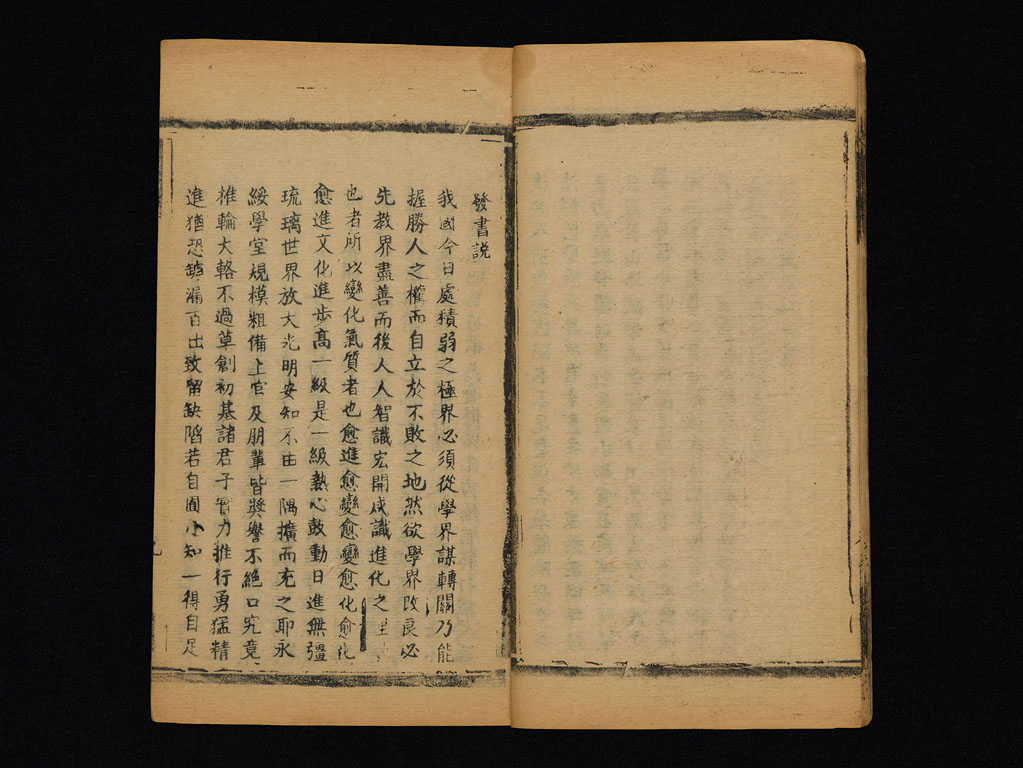 發書說
我國今日處積弱之極界必須從學界謀轉關乃能
握勝人之權而自立於不敗之地然欲學界改良必
先教界盡善而後人人智識宏開成識進化之理
也者所以變化氣质者也愈進愈變愈變愈化愈化
愈進文化進步高一級是一級熱心鼓動日進無彊
琉璃世界放大光明安知不由一隅擴而充之耶永
綏學室規模粗備上官及朋輩皆奬譽不絕口究竟
椎輪大輅不過草創初基諸君子實力推行勇猛精
進猶恐罅漏百出致留缺陷若自囿小知一得自足